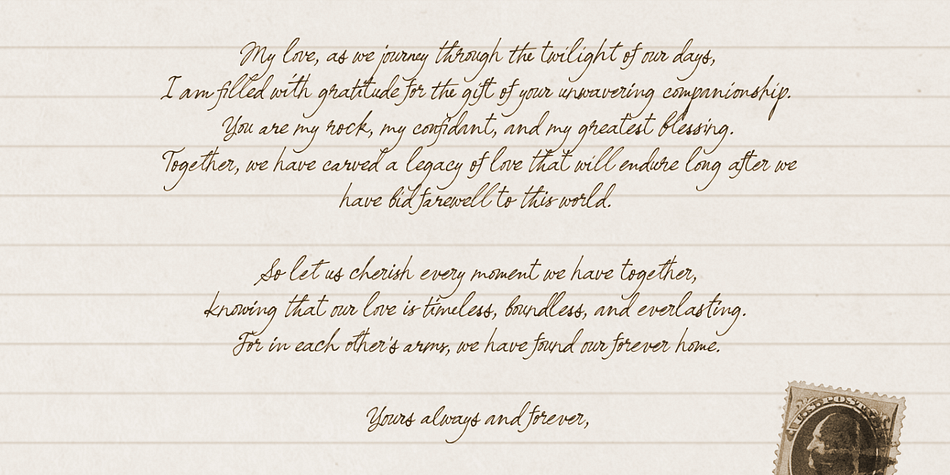 My love, as we journey through the twilight of our days,
I am filled with gratitude for the gift of your unwavering companionship.
You are my rock, my confidant, and my greatest blessing.
Together, we have carved a legacy of love that will endure long after we
have bid farewell to this world.
So let us cherish every moment we have together,
knowing that our love is timeless, boundless, and everlasting.
For in each other's arms, we have found our forever home.
Yours always and forever,
U.S. POSTAGE